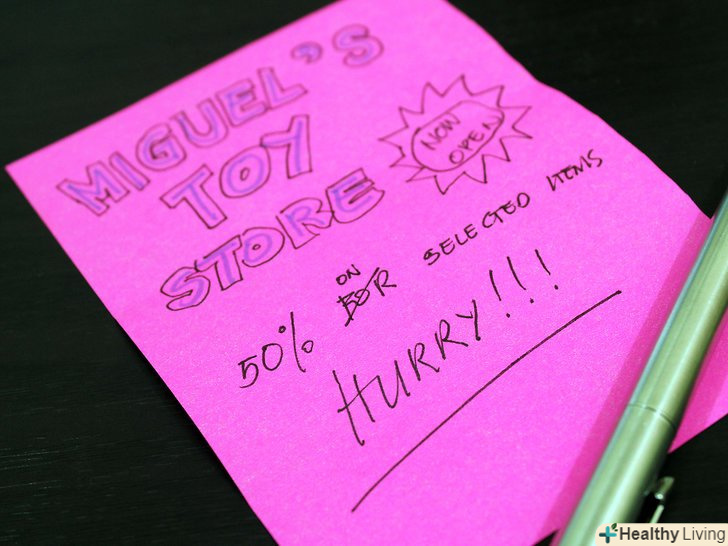 MIGUEL'S
TOY
STORE
NOW
OPEN
50% ON SELECTED ITEMS
HURRY!!!
Healthy Living